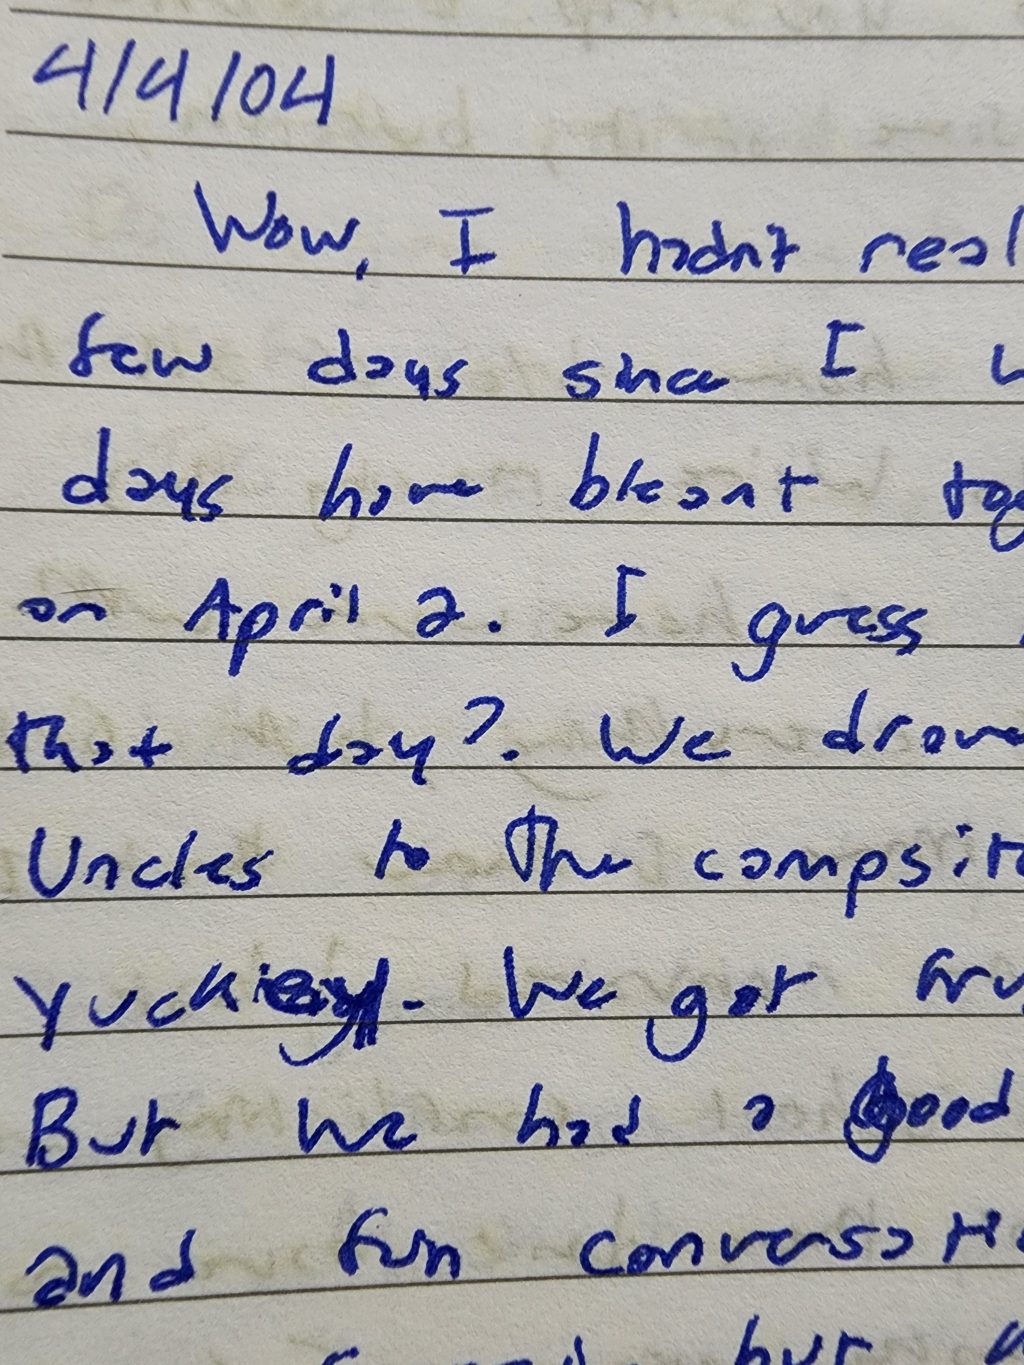 4/4/04
Wow, I hadn't real
few days since I w
days have bleant tog
on April 2. I guess
that day?. We drove
Uncles to the campsite
yuckiey. We got fru
But we had a good
and fun conversati
but